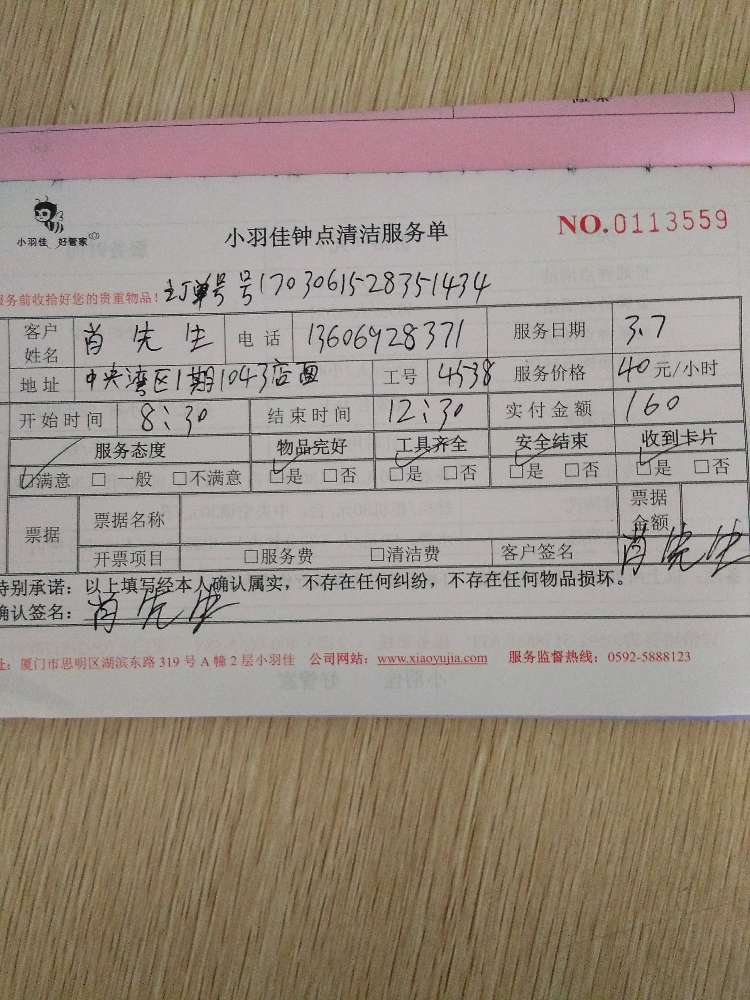 小羽佳 好管家
小羽佳钟点清洁服务单
NO.0113559
服务前收拾好您的贵重物品！订单号号1703061528351434
客户姓名 肖先生 电话 13606928371 服务日期 3.7
地址 中央湾区1期1043店面 工号 4538 服务价格 40元/小时
开始时间 8:30 结束时间 12:30 实付金额 160
服务态度 物品完好 工具齐全 安全结束 收到卡片
☑满意 □一般 □不满意 ☑是 □否 ☑是 □否 ☑是 □否 ☑是 □否
票据 票据名称 票据金额
开票项目 □服务费 □清洁费 客户签名 肖先生
特别承诺：以上填写经本人确认属实，不存在任何纠纷，不存在任何物品损坏。
确认签名：肖先生
址：厦门市思明区湖滨东路319号A幢2层小羽佳 公司网站：www.xiaoyujia.com 服务监督热线：0592-5888123